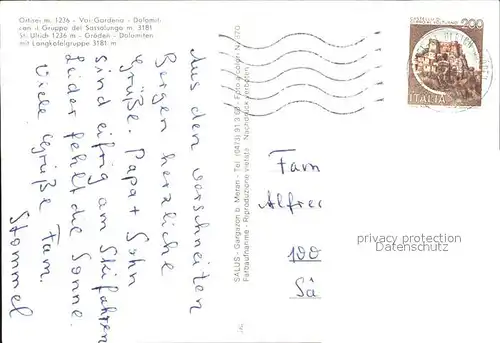 Ortisei m. 1236 - Val Gardena - Dolomiti
con il Gruppo del Sassolungo m. 3181
St. Ulrich 1236 m - Gröden - Dolomiten
mit Langkofelgruppe 3181 m
Aus den verschneiten
Bergen herzliche
Grüße. Papa + Sohn
sind eifrig am Skifahren
Leider fehlt die Sonne.
Viele Grüße Fam.
Stommel
SALUS - Gargazon b. Meran - Tel. (0473) 91 3
Farbaufnahme - Riproduzione vietata - Nachdruck verboten
CASTELLO DI
200
ITALIA
Fam
Alfred
100
Sä
privacy protection
Datenschutz